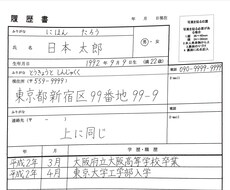 履歴書
年 月 日現在
ふりがな にほん たろう
氏名 日本 太郎
男・女
生年月日 1992年9月9日生 (満22歳)
ふりがな とうきょうと しんじゅく
電話 090-9999-9999
現住所 (〒559-9999)
E-mail
東京都新宿区99番地99-9
ふりがな
電話
連絡先 (〒 - )
E-mail
上に同じ
年 月 学歴・職歴
平成2年 3月 大阪府立大阪高等学校卒業
平成2年 4月 東京大学工学部入学